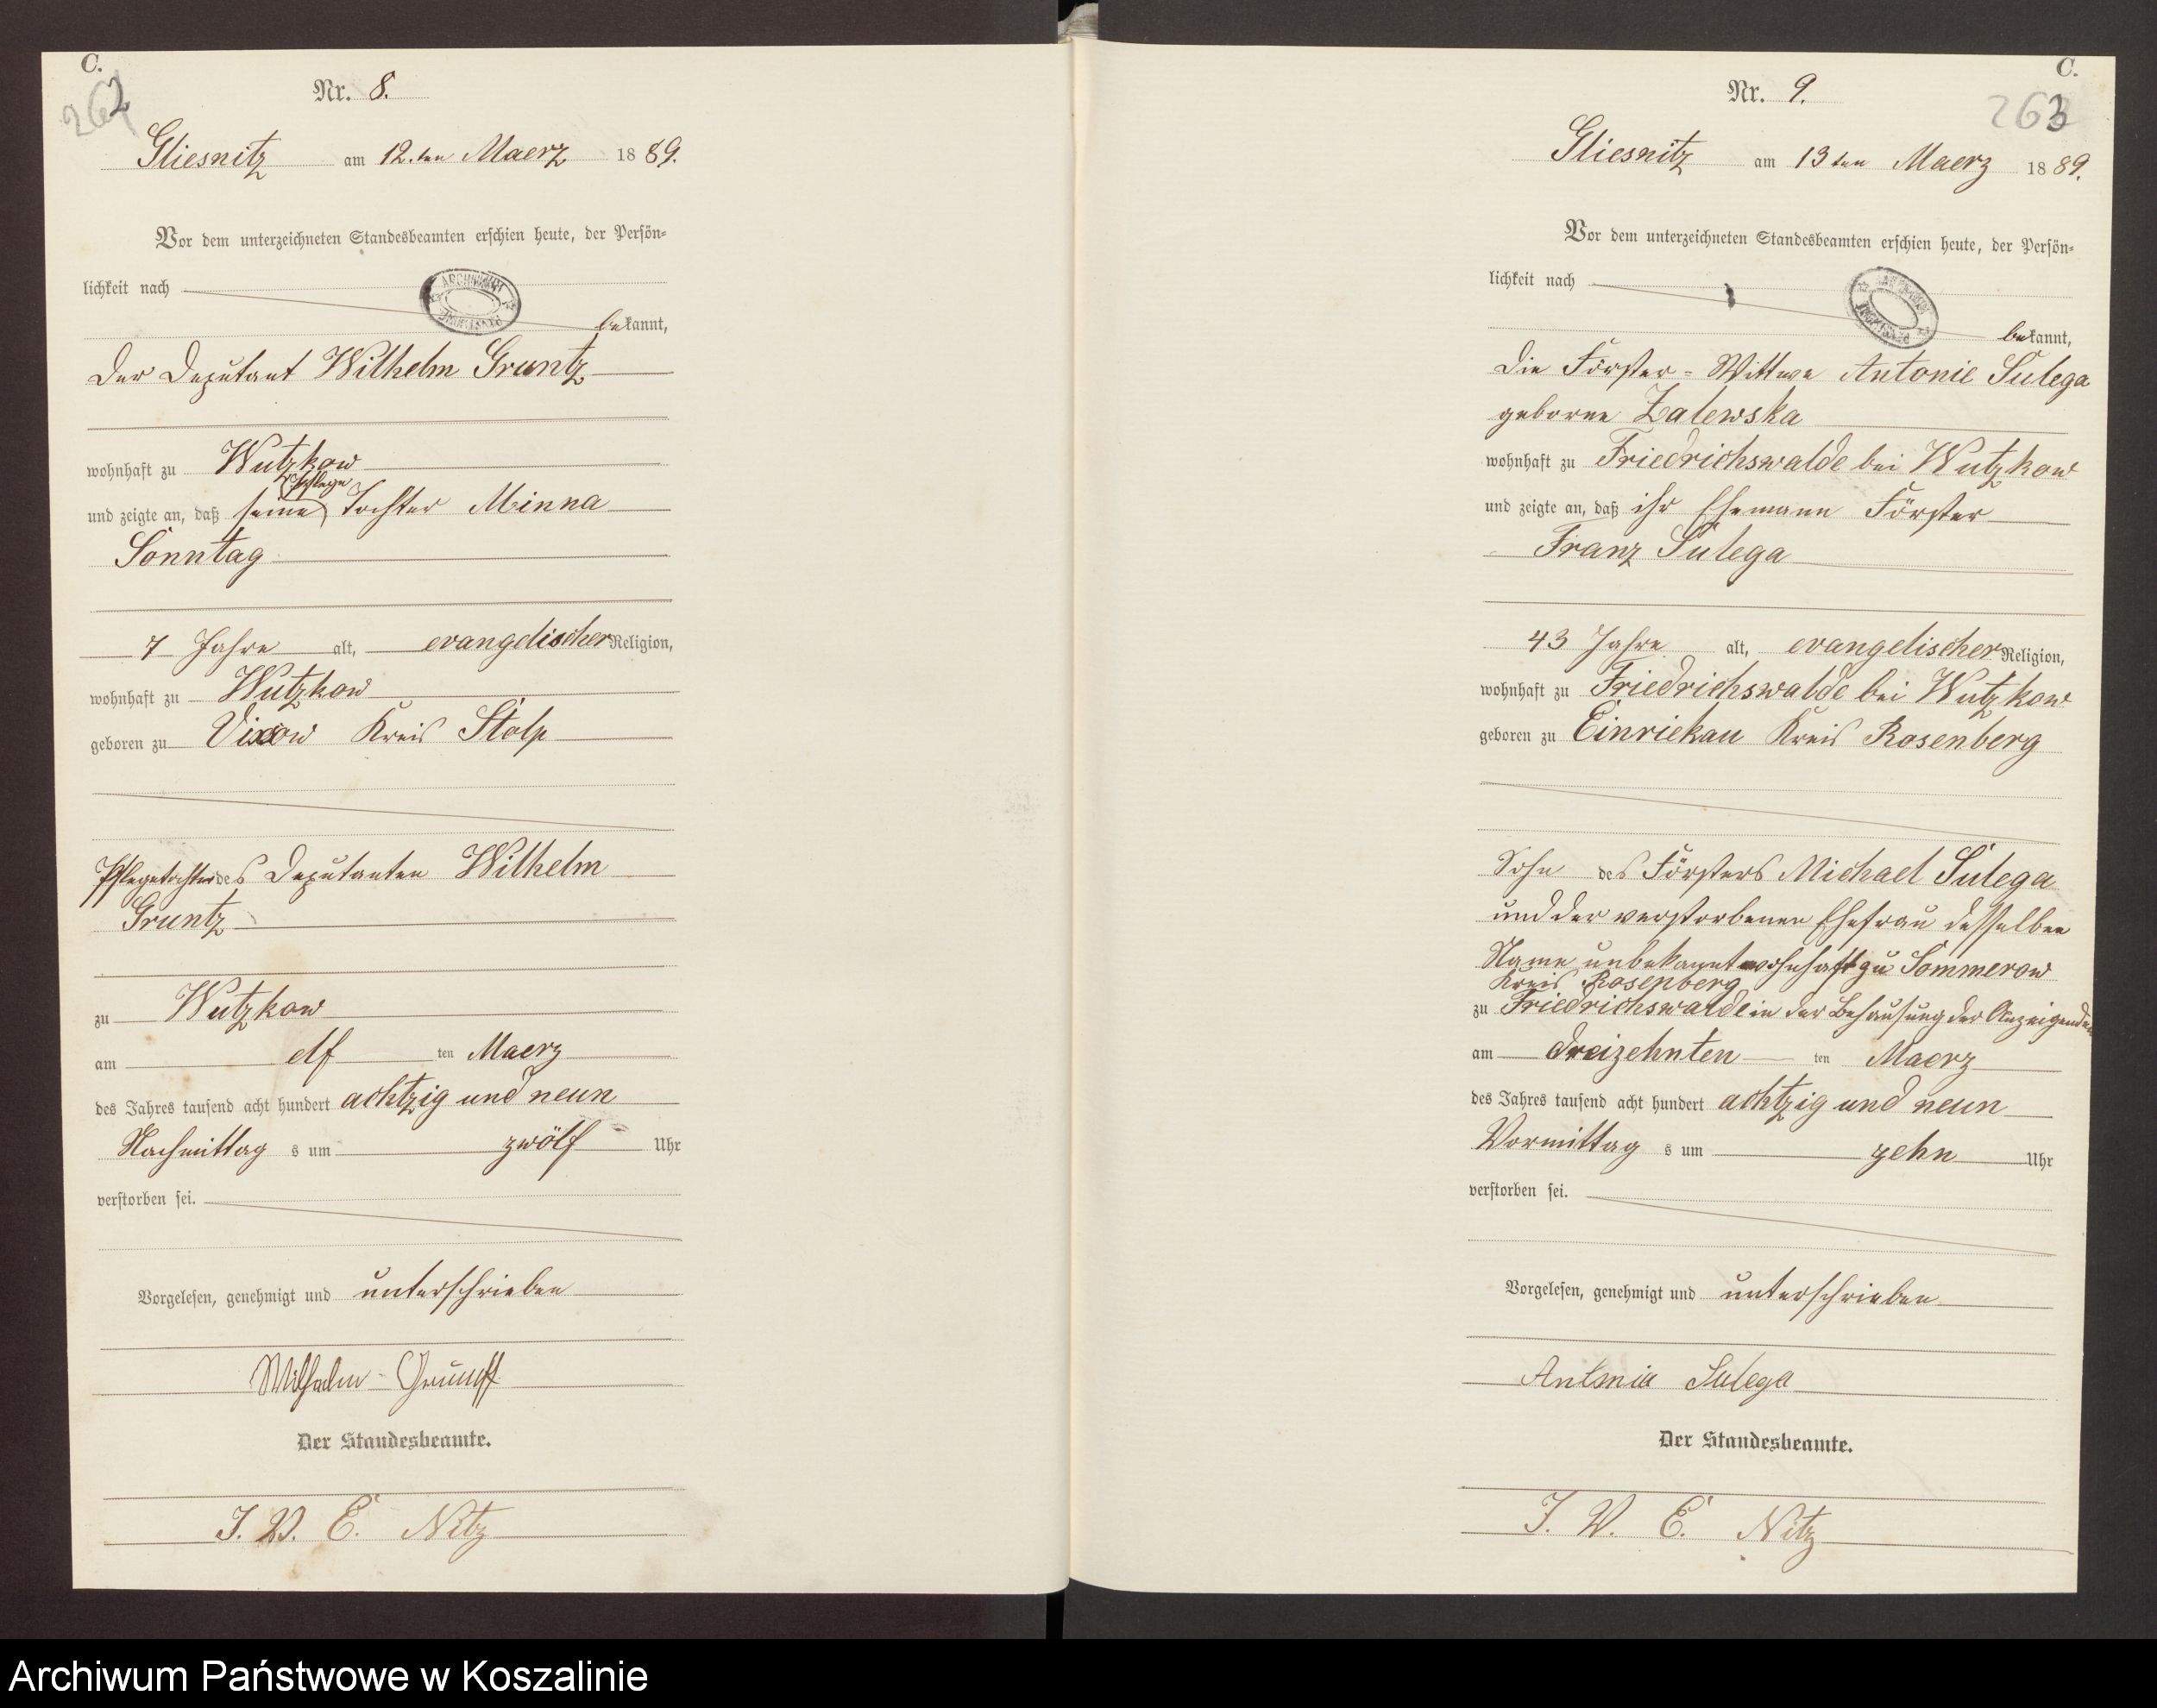 C.
262
Nr. 8.
Gliesnitz am 12.ten Maerz 1889.
Vor dem unterzeichneten Standesbeamten erschien heute, der Persön-
lichkeit nach
bekannt,
der Deputant Wilhelm Gruntz
wohnhaft zu Wutzkow
Pflege
und zeigte an, daß seine Tochter Minna
Sonntag
7 Jahre alt, evangelischer Religion,
wohnhaft zu Wutzkow
geboren zu Vixow Kreis Stolp
Pflegetochter des Deputanten Wilhelm
Gruntz
zu Wutzkow
am elf ten Maerz
des Jahres tausend acht hundert achtzig und neun
Nachmittag s um zwölf Uhr
verstorben sei.
Vorgelesen, genehmigt und unterschrieben
Wilhelm
Der Standesbeamte.
J. V. E. Nitz
C.
263
Nr. 9.
Gliesnitz am 13ten Maerz 1889.
Vor dem unterzeichneten Standesbeamten erschien heute, der Persön-
lichkeit nach
bekannt,
die Förster-Wittwe Antonie Sulega
geborne Zalewska
wohnhaft zu Friedrichswalde bei Wutzkow
und zeigte an, daß ihr Ehemann Förster
Franz Sulega
43 Jahre alt, evangelischer Religion,
wohnhaft zu Friedrichswalde bei Wutzkow
geboren zu Einriekau Kreis Rosenberg
Sohn des Försters Michael Sulega
und der verstorbenen Ehefrau desselben
Name unbekannt wohnhaft zu Sommerow
Kreis Rosenberg
zu Friedrichswalde in der Behausung der Anzeigenden
am dreizehnten ten Maerz
des Jahres tausend acht hundert achtzig und neun
Vormittag s um zehn Uhr
verstorben sei.
Vorgelesen, genehmigt und unterschrieben
Antonia Sulega
Der Standesbeamte.
J. V. E. Nitz
Archiwum Państwowe w Koszalinie